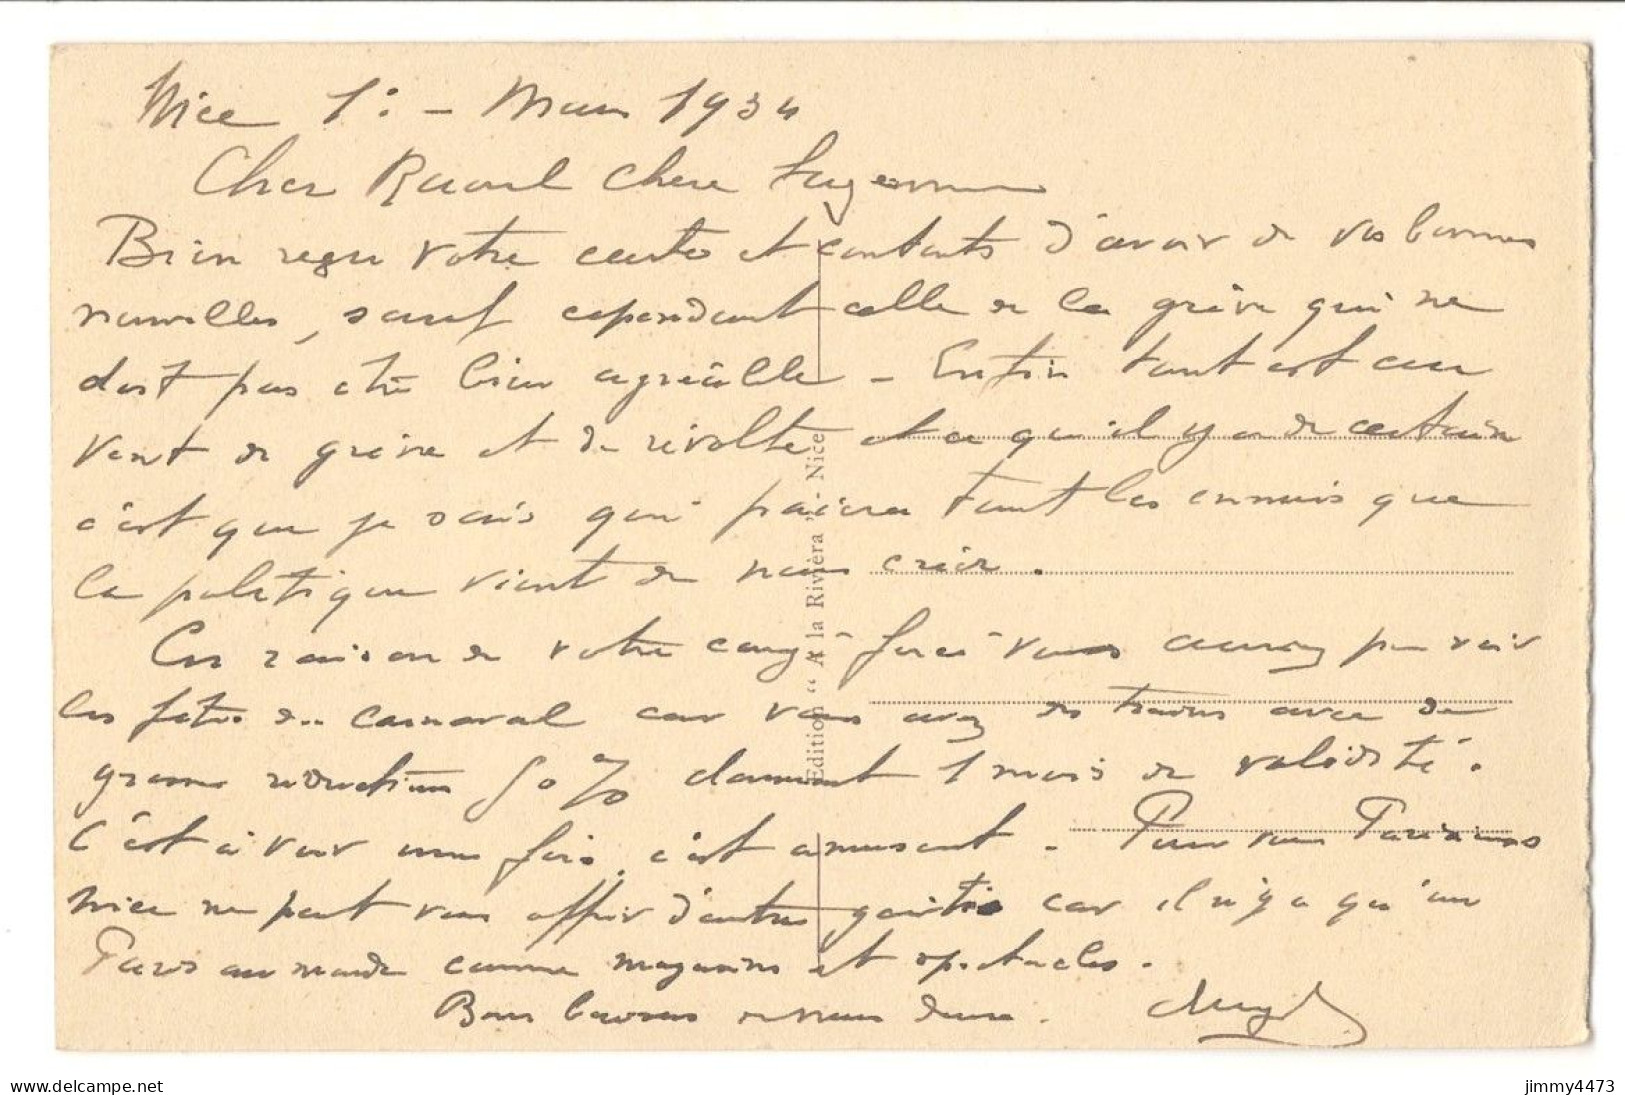 Nice 1: - Mars 1934
Cher Raoul chère Suzanne
Bien reçu votre carte et contents d'avoir de vos bonnes
nouvelles, sauf cependant celle de la grève qui ne
doit pas être bien agréable - Enfin tout est au
vent de grève et de révolte et ce qu'il y a de certain
c'est que je sais qui paiera tout les ennuis que
la politique vient de nous créer.
En raison de votre congé forcé vous auriez pu voir
les fêtes du carnaval car vous avez des trains avec de
grosses réductions 50 % donnant 1 mois de validité.
C'est à voir une fois, c'est amusant. Pour vous Parisiens
Nice ne peut vous offrir d'autres gaîtés car il n'y a qu'un
Paris au monde comme magasins et spectacles.
Bons baisers de nous deux.
Edition "A la Rivièra" - Nice
delcampe.net
jimmy4473